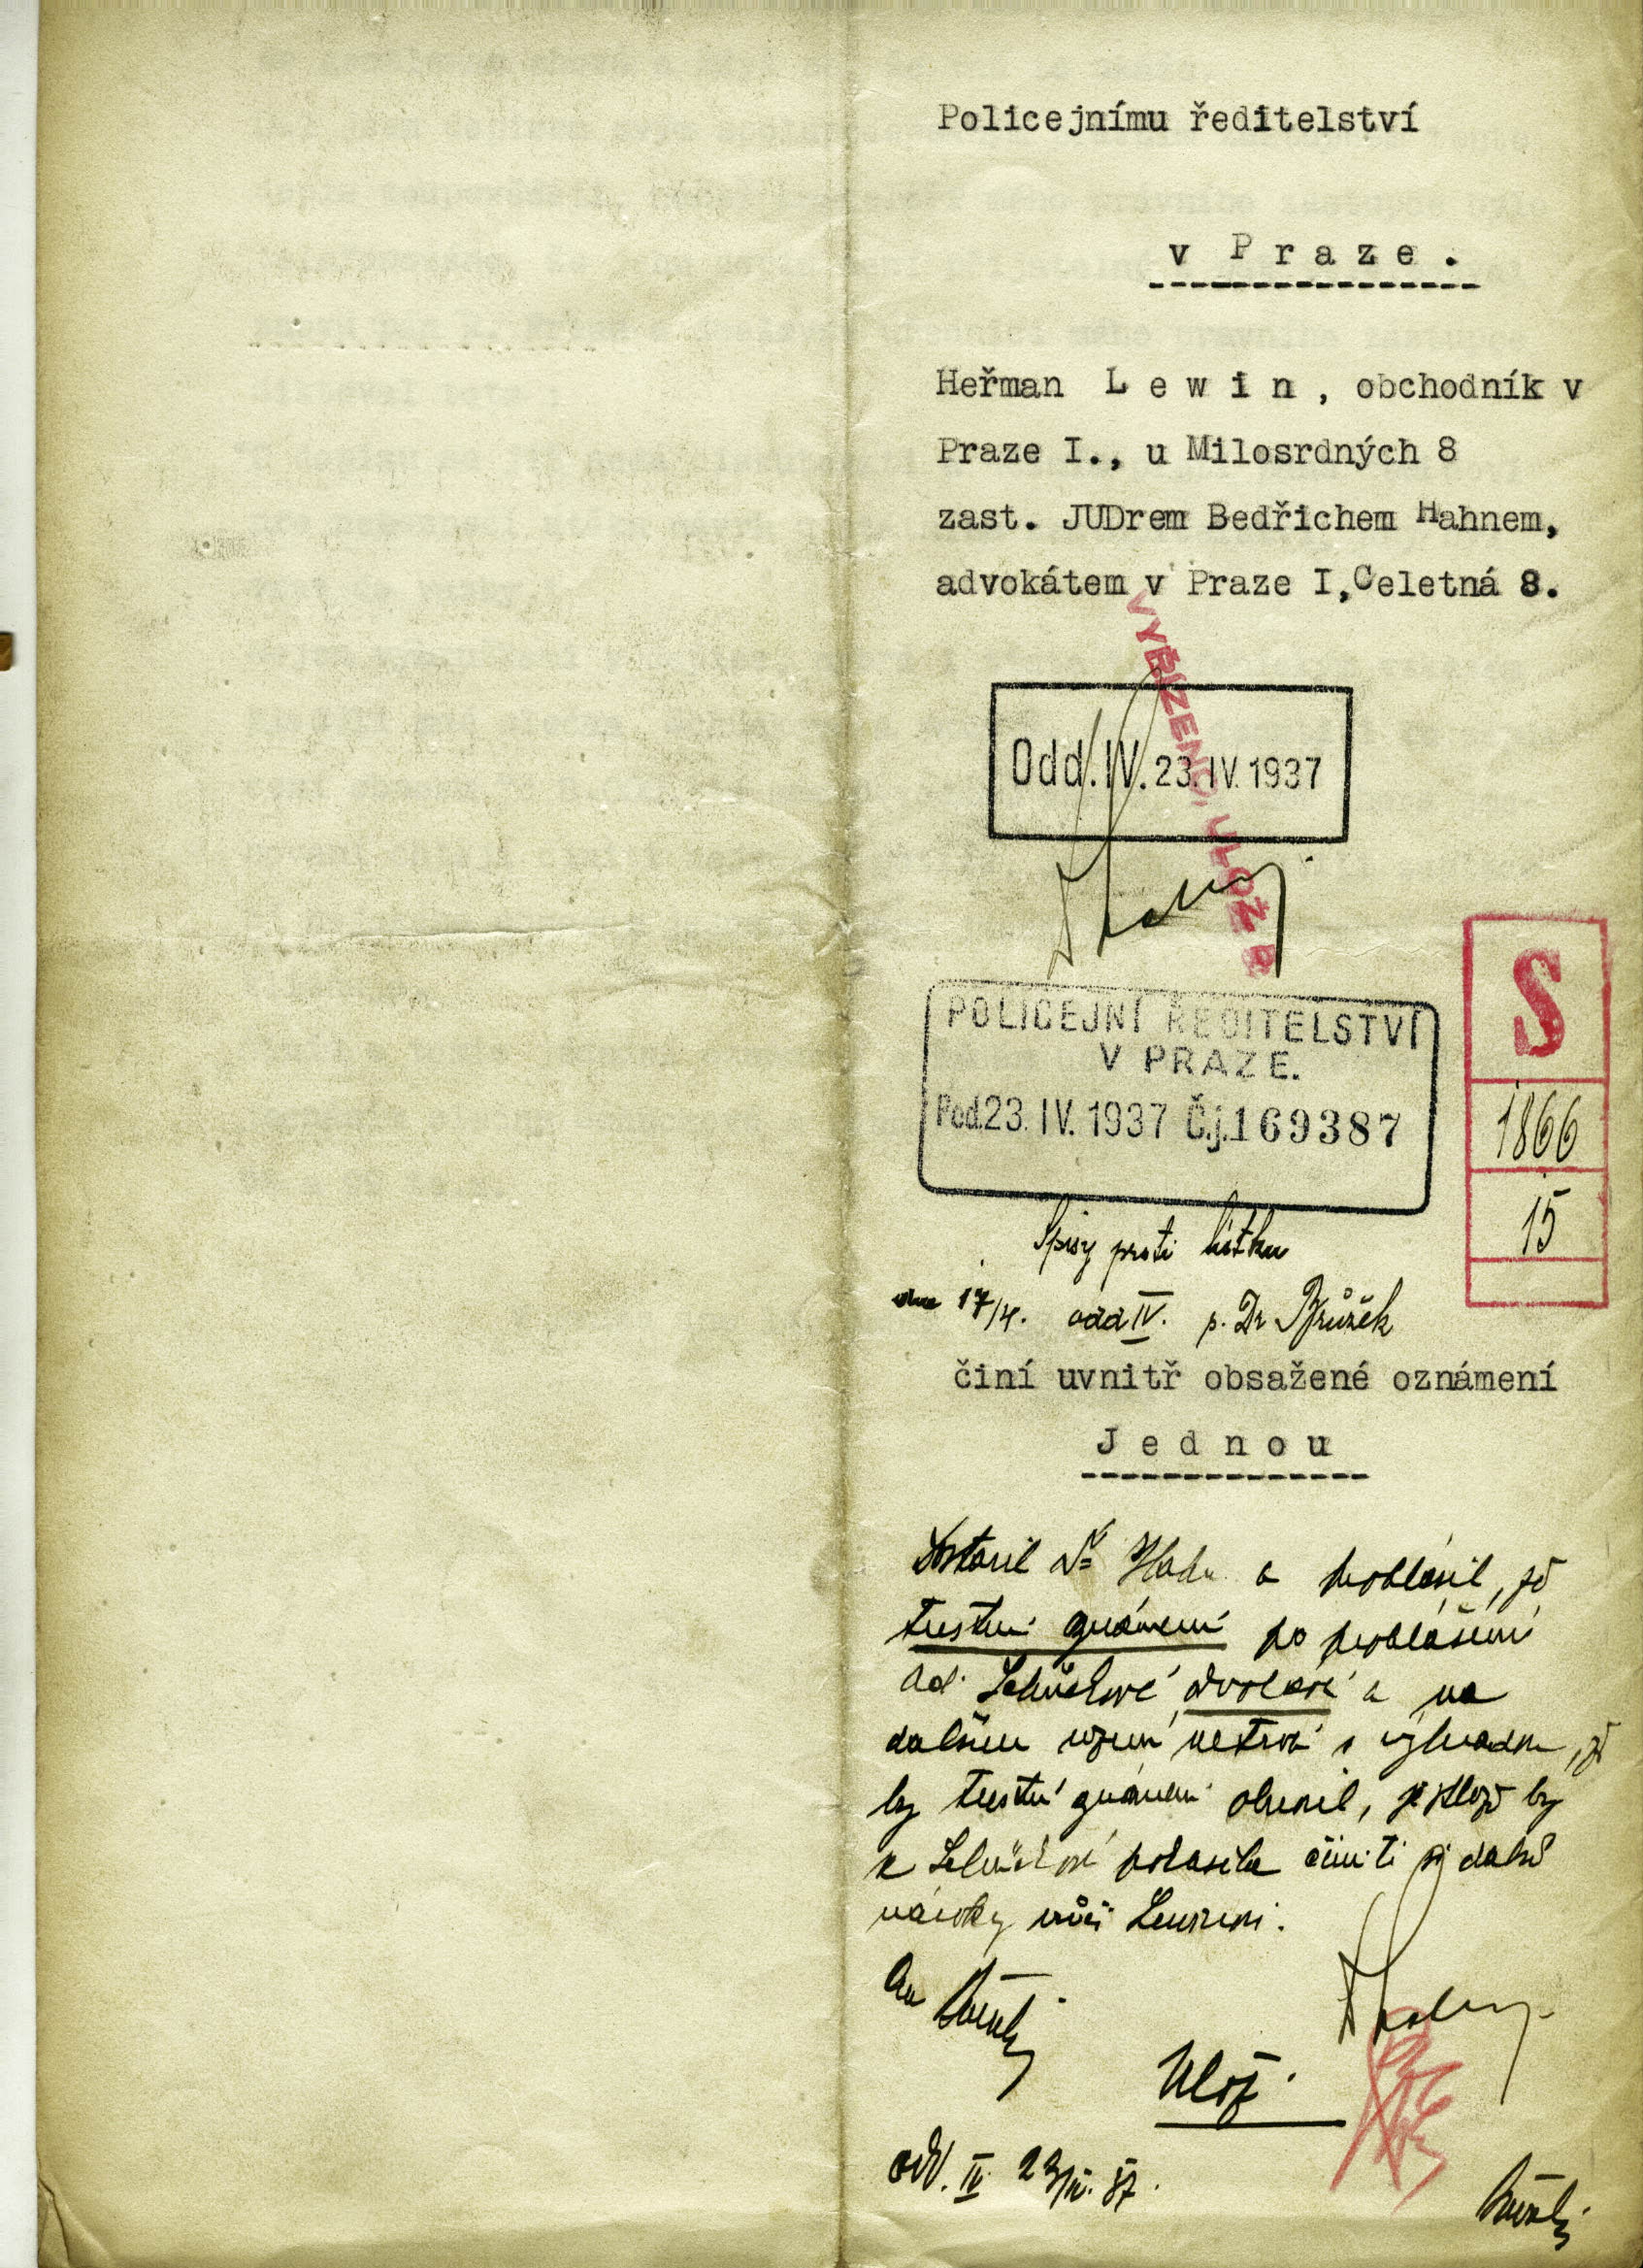 Policejnímu ředitelství
v Praze.
Heřman Lewin, obchodník v
Praze I., u Milosrdných 8
zast. JUDrem Bedřichem Hahnem,
advokátem v Praze I,Celetná 8.
VYŘÍZENO, ULOŽ
Odd. IV. 23. IV. 1937
POLICEJNÍ ŘEDITELSTVÍ
V PRAZE.
Pod. 23. IV. 1937 Č.j. 169387
S
1866
15
Spisy proti lístku
17/4. odd IV. p. Dr Brůžek
činí uvnitř obsažené oznámení
Jednou
Dostavil Dr Hahn a prohlásil, že
trestní oznámení po prohlášení
odvolává a na
dalším řízení netrvá s výhradou, že
by trestní oznámení obnovil, jestliže by
činiti si další
nároky vůči Lewinovi.
Ulož.
odd. IV 23/IV. 37.